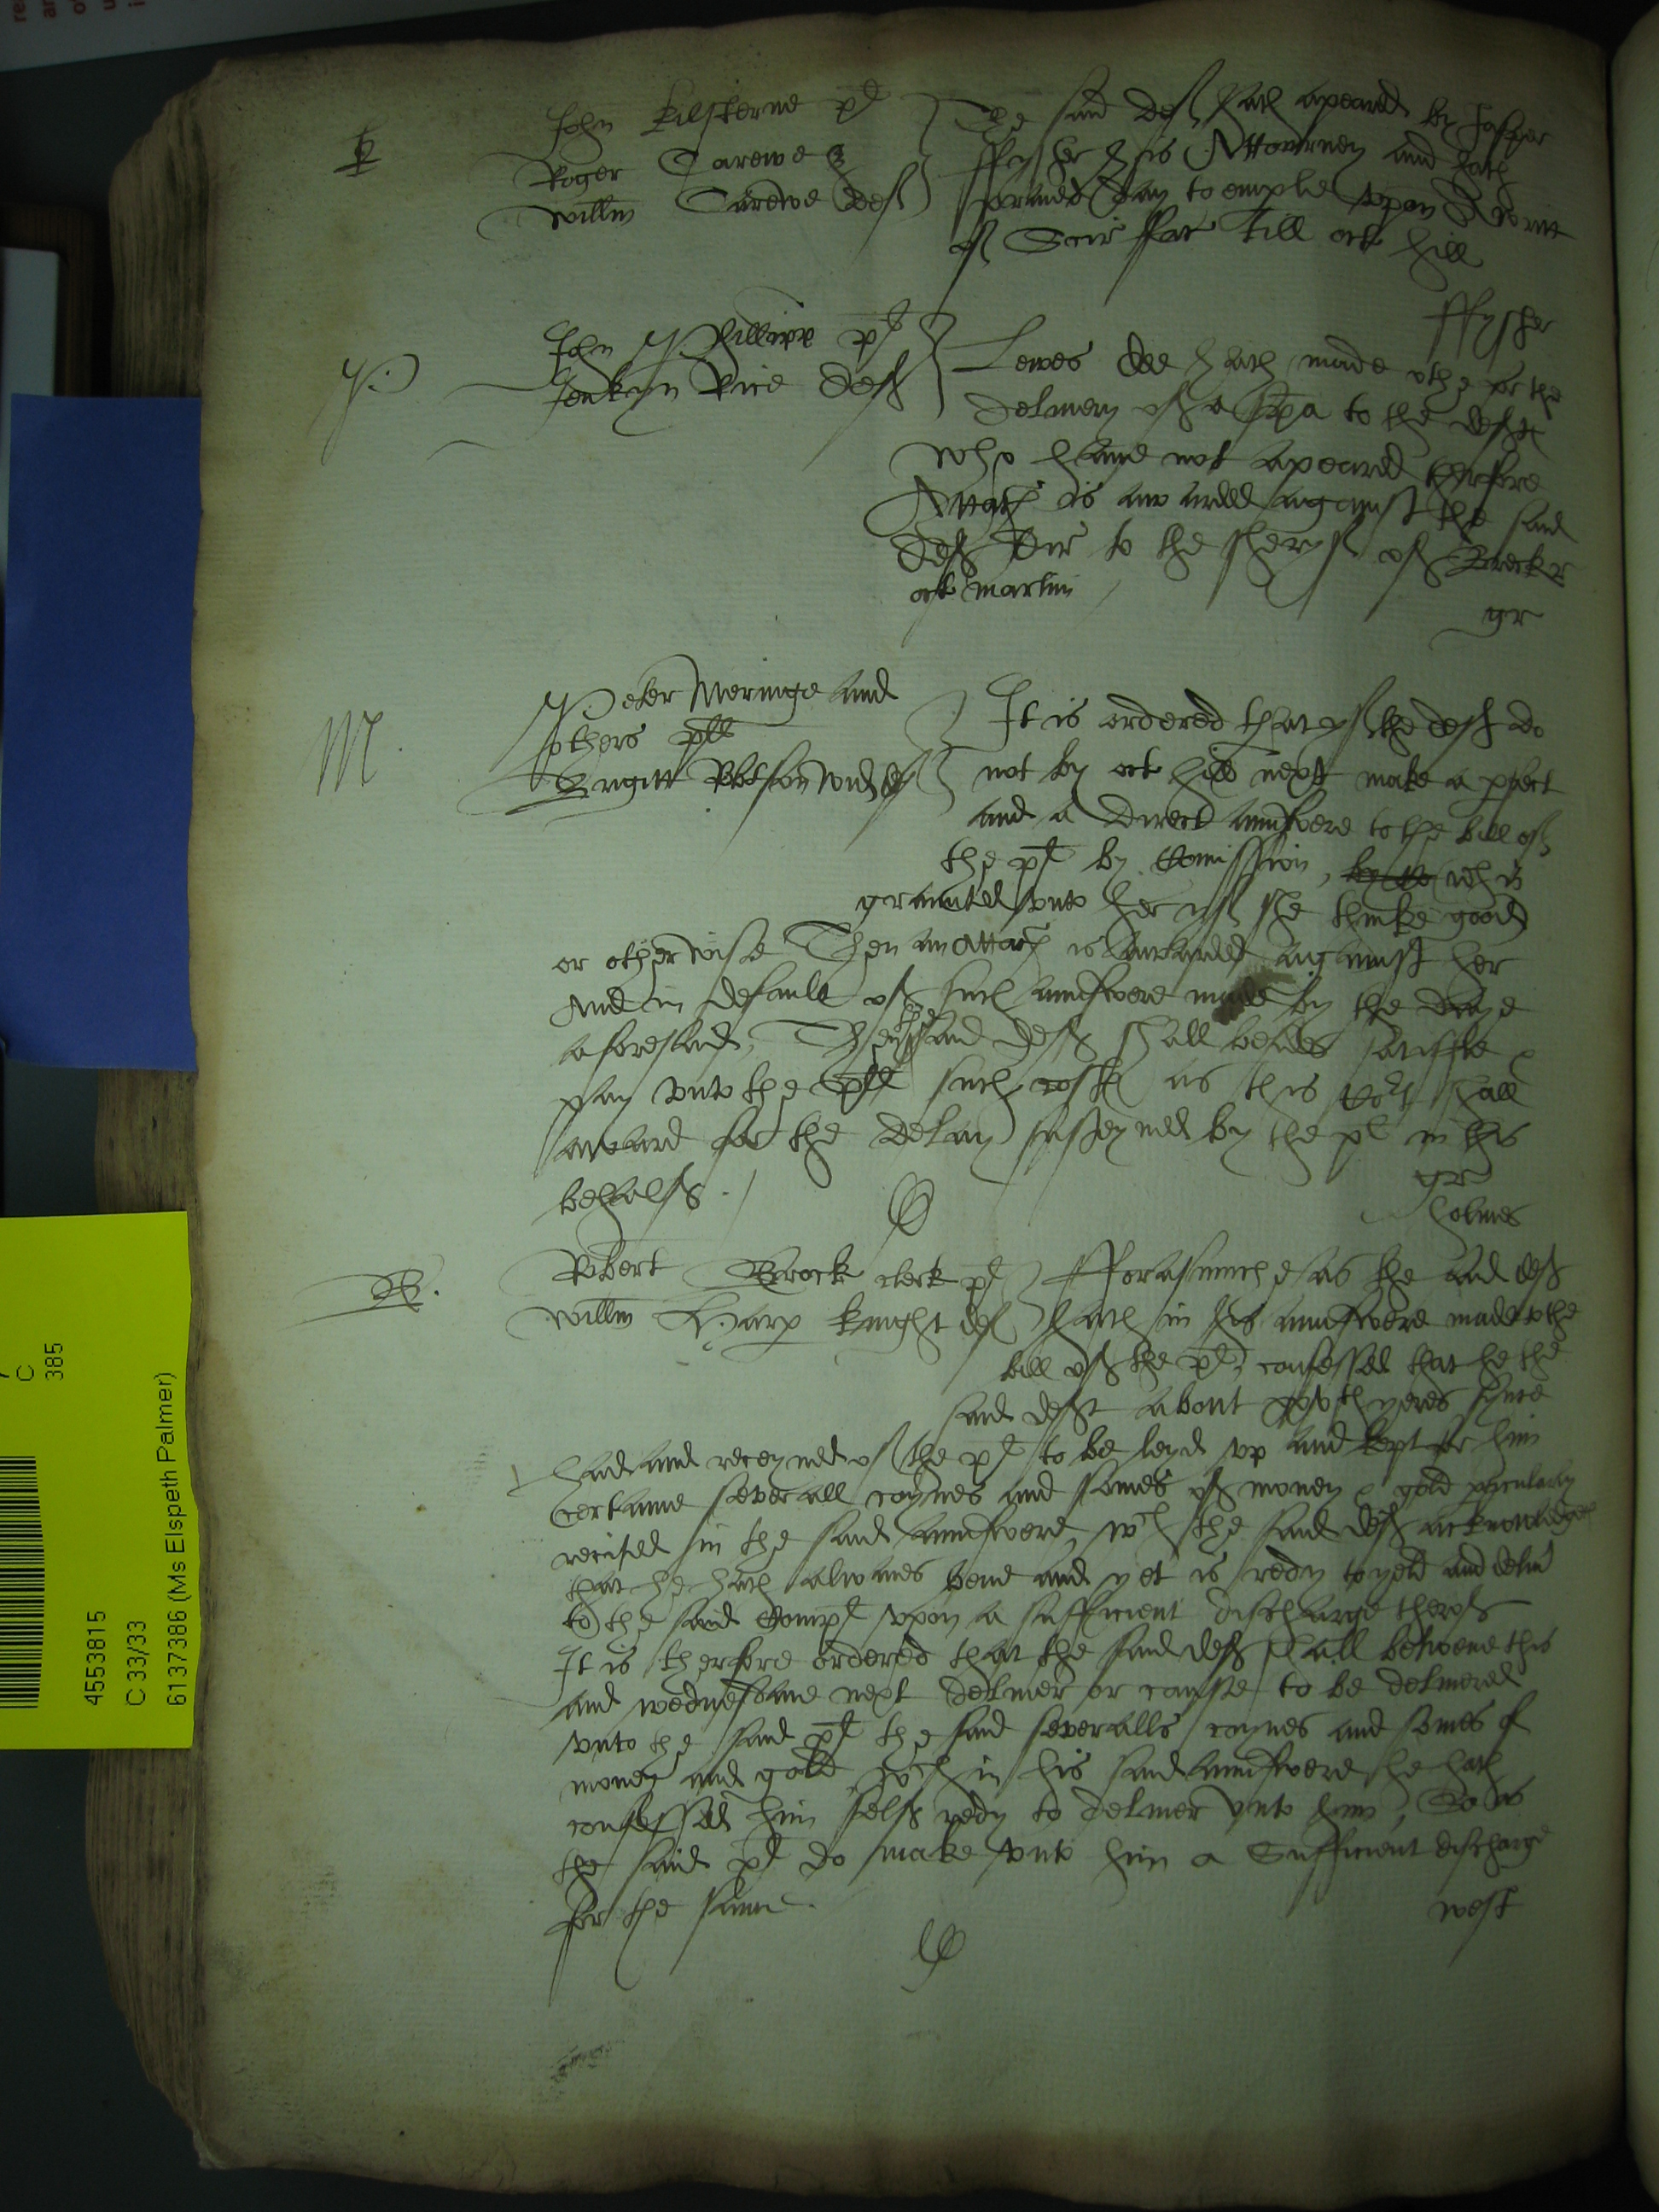 John Kelsterne pl
Roger Carewe &
Willm Carewe def
The said def hath apeared by Jasper
ffysher his Attourney and hath
day to emplie vpon A writt
of Scir ffac till oct hill
ffysher
P.
John Phillipps pl
Jenkyn Rice def
Lewes hath made othe for the
delivery of a spa to the deft
who haue not apeared therfore
Attach is awarded against the said
def Dir to the sheryf of Breck
oct martini
gr
M
Peter Meringe and
others pltt
Brigitt Robtson wid def
It is ordered that yf the def do
not by oct hill next make a pfect
and a direct aunswere to the bill of
the pl by Comission, wch is
graunted vnto her yf she thinke good
or otherwise Then an attach is awarded against her
And in default of such aunswere made by the daye
aforesaid, Then the said def shall besides satisfie &
pay vnto the pltt such costs as this Cort shall
award for the delay susteyned by the pl in this
behalf.
gr
holmes
B.
Robert Brock clerk pl
Willm Sharp knight def
Fforasmuche as the said def
hath in his aunswere made to the
bill of the pl, confessed that he the
said deft about yeres synce
had and receyued of the pl to be leyd vp and kept for him
certaine severall coynes and somes of money & gold pticularly
recited in the said aunswere, wch the said def acknowledgeth
that he hath alwaies bene and yet is redy to yeld and deliu
to the said Compl vpon a sufficient discharge therof
It is therfore ordered that the said def shall betwene this
and wednesdaie next deliuer or cause to be deliuered
vnto the said pl the said severalls coynes and somes of
money and gold wch in his said aunswere he hath
confessed him self redy to deliuer vnto him, So as
the said pl do make vnto him a Sufficient discharge
for the same.
west
C
385
4553815
C 33/33
6137386 (Ms Elspeth Palmer)